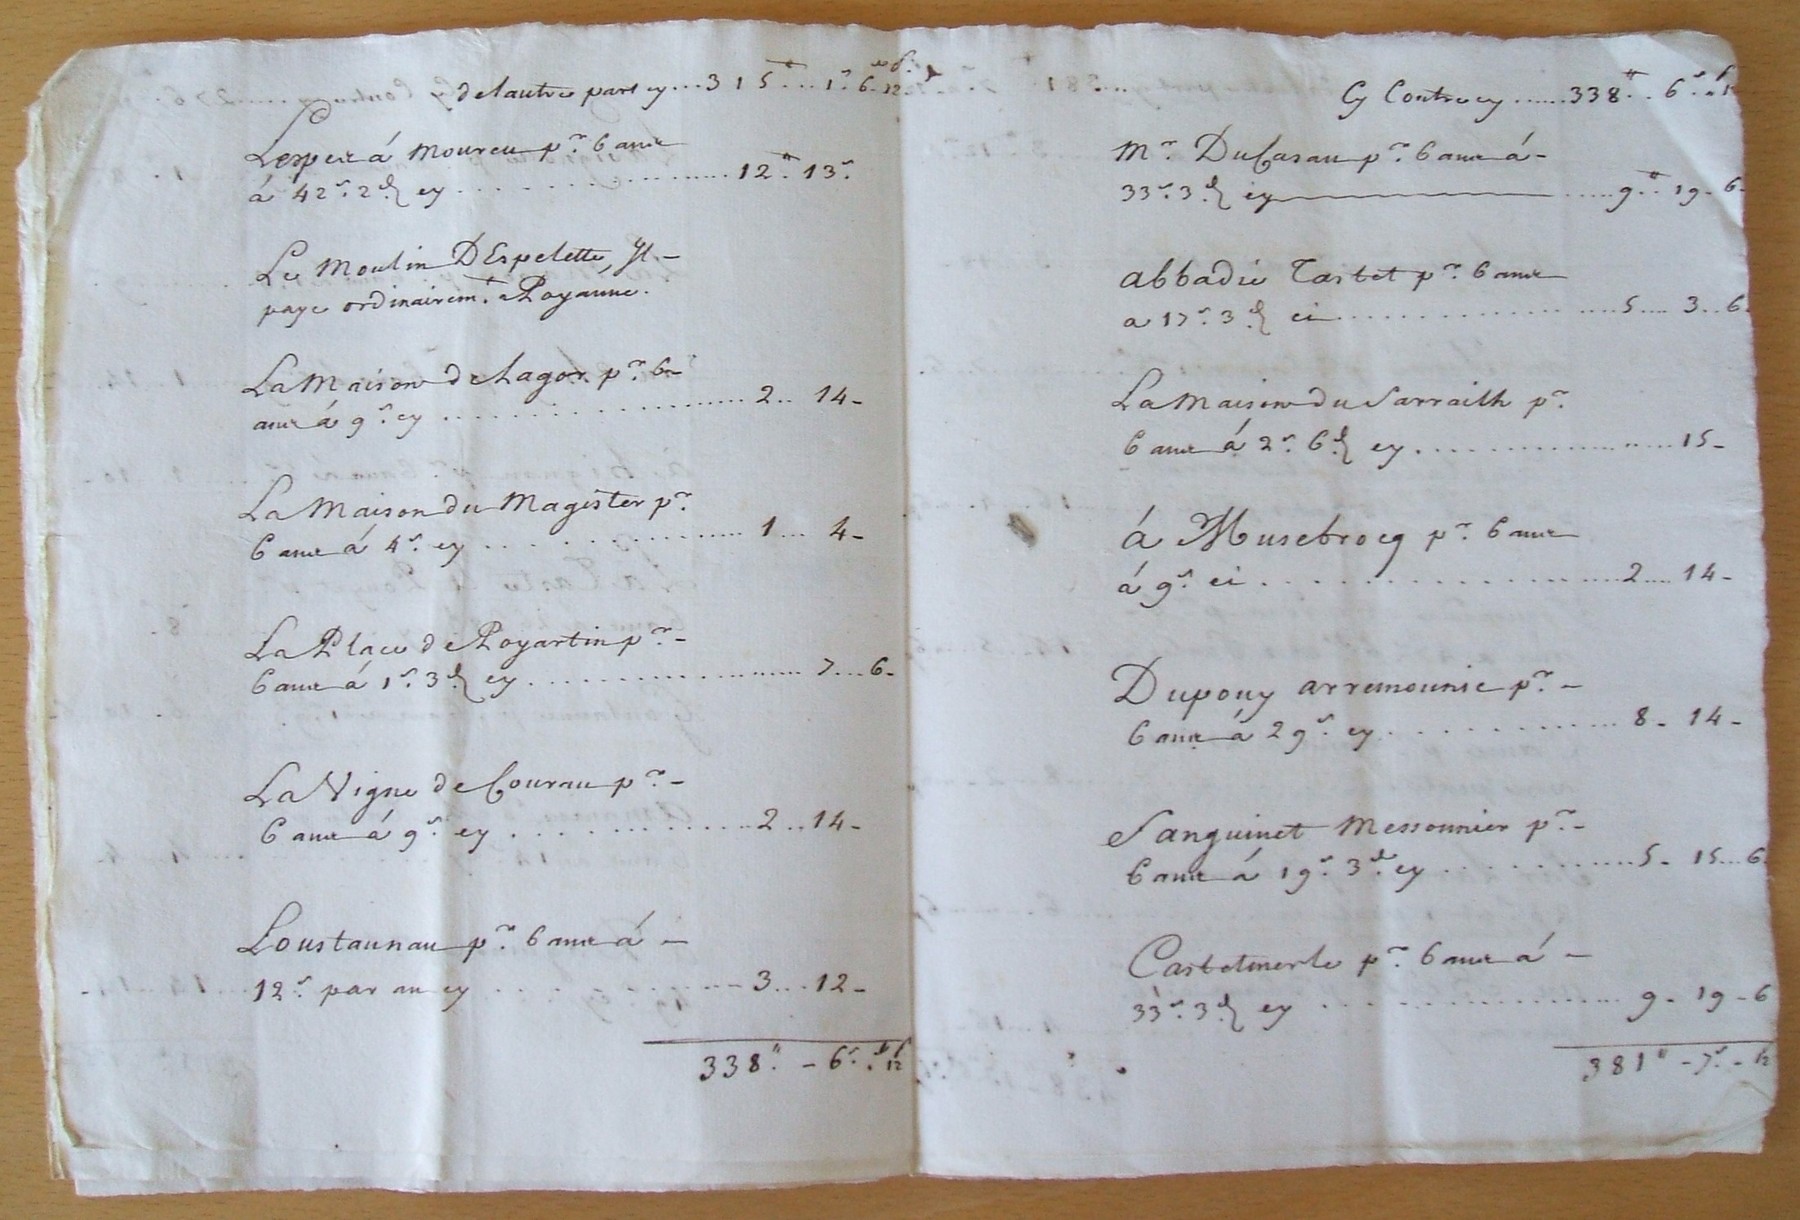 de lautre part cy...315ᵗᵗ...1ˢ. 6 ᵈ 12
Lespere á Moureu pʳ. 6 ans
á 42ˢ. 2ᵈ cy ........... 12ᵗᵗ. 13ˢ.
Le Moulin DEspelette, Jl -
paye ordinairemᵗ. a Poyanne.
La Maison de Lagor pʳ. 6 -
ans á 9ˢ. cy ........... 2.. 14 -
La Maison du Magister pʳ.
6 ans á 4ˢ. cy ........... 1... 4 -
La Place de Poyartin pʳ. -
6 ans á 1ˢ. 3ᵈ cy ........... 7... 6 -
La Vigne de Courau pʳ. -
6 ans á 9ˢ. cy ........... 2.. 14 -
Loustaunau pʳ. 6 ans á -
12ˢ. par an cy ........... 3... 12 -
338ᵗᵗ. - 6ˢ. ᵈ 12
Cy Contre cy ......338ᵗᵗ.. 6ˢ.
Mʳ. DuCasau pʳ. 6 ans á -
33ˢ. 3ᵈ cy ........... 9ᵗᵗ.. 19 - 6 -
abbadie Tastet pʳ. 6 ans
a 17ˢ. 3ᵈ ci ........... 5.... 3.. 6
La Maison du Sarraith pʳ.
6 ans á 2ˢ. 6ᵈ cy ........... 15 -
á Musebrocq pʳ. 6 ans
á 9ˢ. ci ........... 2.... 14 -
Dupouy arremounic pʳ. -
6 ans á 29ˢ. cy ........... 8 - 14 -
Sanguinet Messounier pʳ. -
6 ans á 19ˢ. 3ᵈ. cy ........... 5 - 15... 6
Castelmerle pʳ. 6 ans á -
33ˢ. 3ᵈ cy ........... 9 - 19 - 6
381ᵗᵗ - 7ˢ. - 12